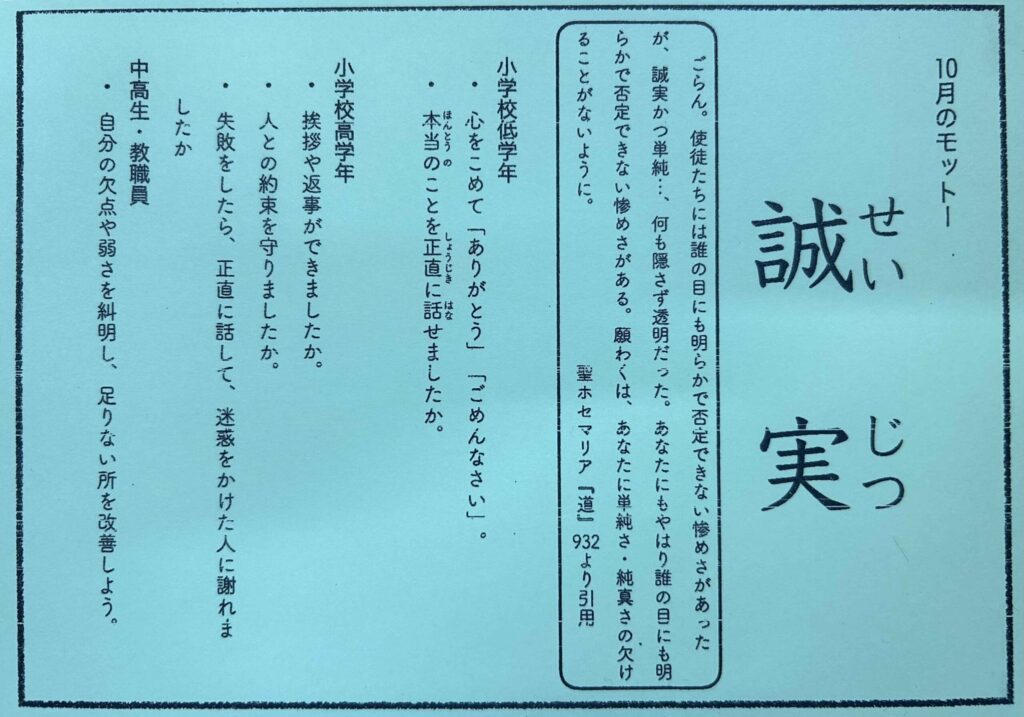 10月のモットー
誠実
せいじつ
ごらん。使徒たちには誰の目にも明らかで否定できない惨めさがあった
が、誠実かつ単純…、何も隠さず透明だった。あなたにもやはり誰の目にも明
らかで否定できない惨めさがある。願わくは、あなたに単純さ・純真さの欠け
ることがないように。
聖ホセマリア『道』932より引用
小学校低学年
・心をこめて「ありがとう」「ごめんなさい」。
・本当のことを正直に話せましたか。
ほんとうの しょうじき はな
小学校高学年
・挨拶や返事ができましたか。
・人との約束を守りましたか。
・失敗をしたら、正直に話して、迷惑をかけた人に謝れま
したか
中高生・教職員
・自分の欠点や弱さを糾明し、足りない所を改善しよう。